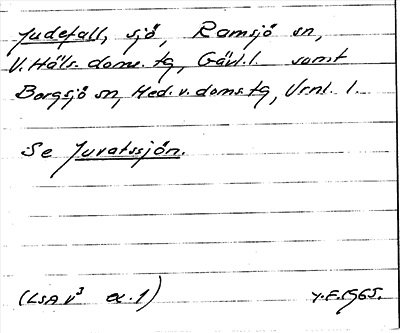 Judefall, sjö, Ramsjö sn,
V. Häls. doms. tg, Gävl. l. samt
Borgsjö sn, Med. v. doms tg, Vrnl. l.
Se Juvatssjön.
(LSA V³ a. 1) Y.F. 1965.